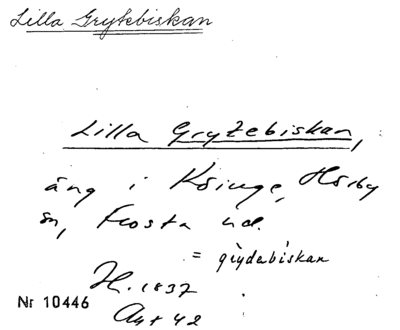 Lilla Grytebiskan
Lilla Grytebiskan,
äng i Köinge, Hörby
sn, Frosta hd.
= grỳdabìskan
H. 1837
Nr 10446
Akt 42